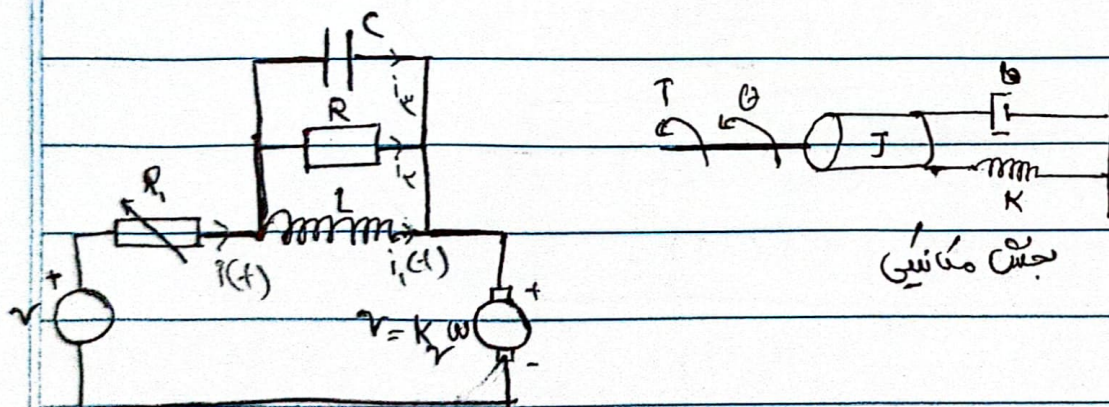 C
i۳
R
i۲
R₁
L
i(t)
i₁(t)
+
v
v = Kᵥω
+
-
T
θ
J
b
K
بخش مکانیکی